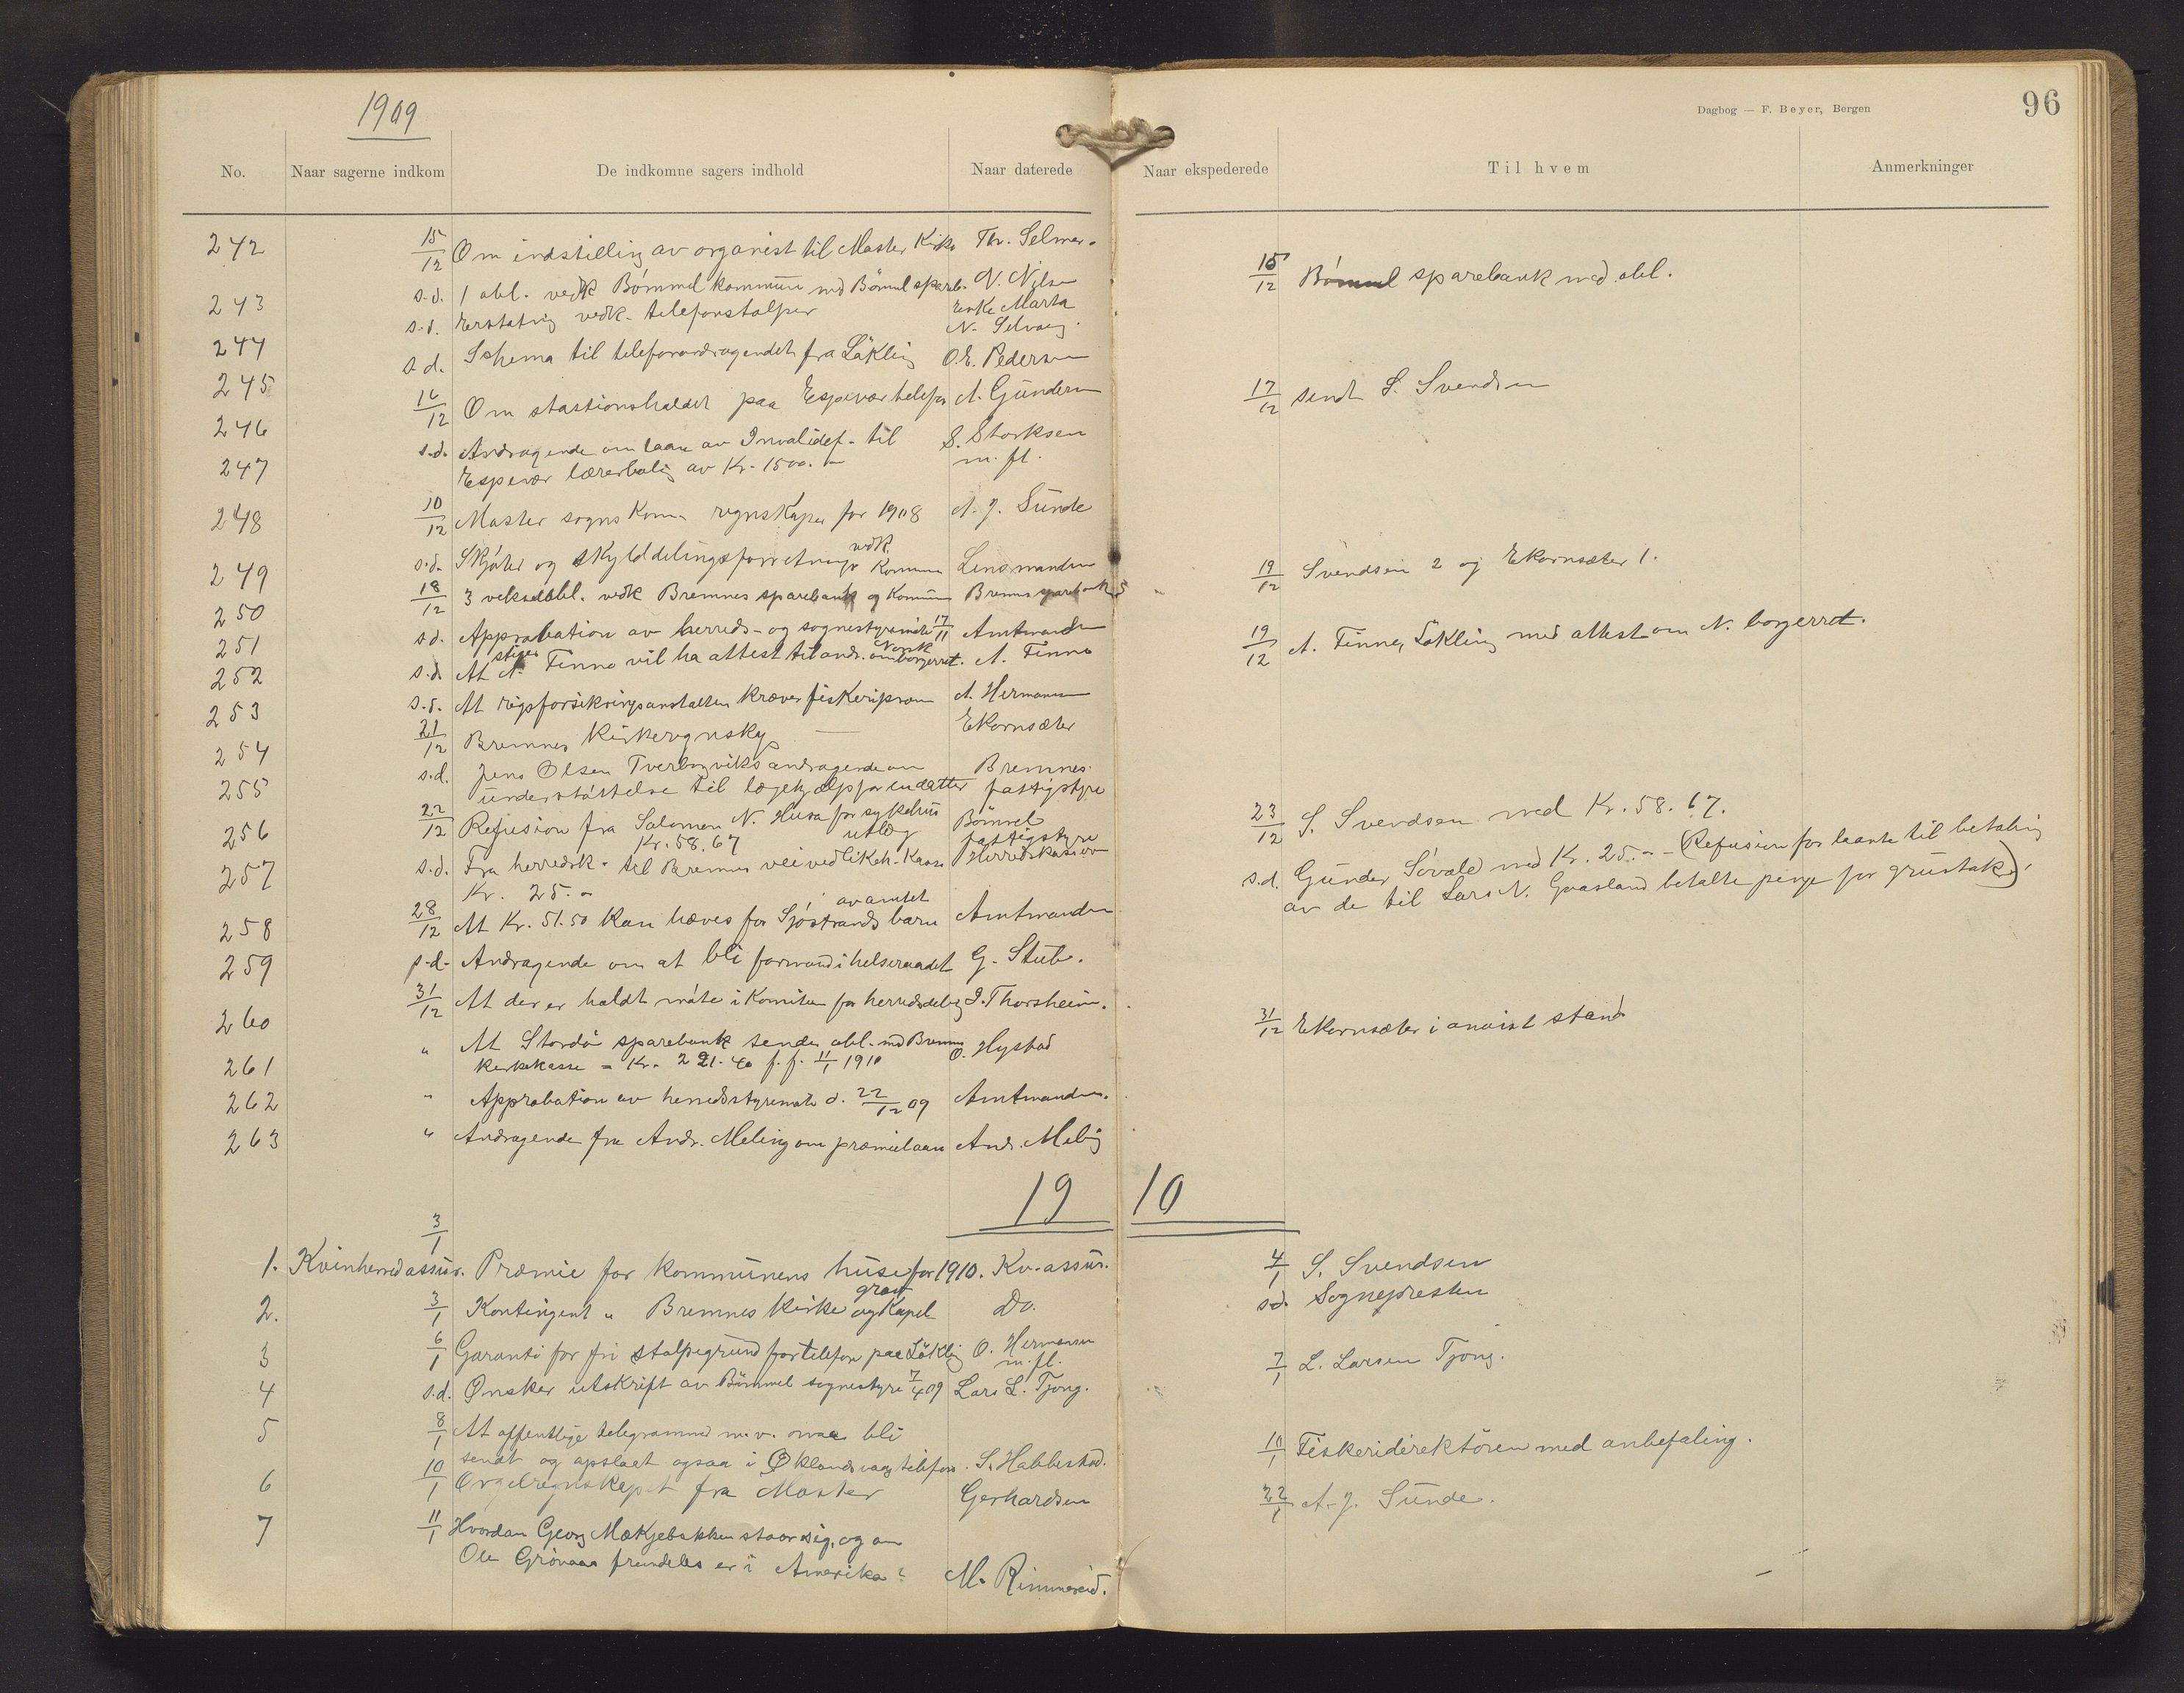 1909
Dagbog — F. Beyer, Bergen
96
No. Naar sagerne indkom De indkomne sagers indhold Naar daterede Naar ekspederede Til hvem Anmerkninger
242 15/12 Om indstilling av organist til Moster Kirke Th. Selmer.
243 s.d. 1 obl. vedk Bømmel kommune med Bömmel spareb. N. Nilsen 15/12 Bömmel sparebank med obl.
244 s.d. Erstatnig vedk. telefonstolper Enke Marta
N. Selvaag.
245 s.d. Schema til telefonandragendet fra Läklig O. E. Pedersen
246 16/12 Om stastionsholdet paa Espevær telefon A. Gundersen 17/12 sendt S. Svendsen
247 s.d. Andragende om laan av Invalidef. til S. Storksen
Espevær lærerbolig av Kr. 1500.- m. fl.
248 10/12 Moster sogns Kom. regnskaper for 1908 A. J. Sunde
249 s.d. Skjöter og skylddelingsforretninger vedk. Kommunen Lensmanden
250 18/12 3 vekselobl. vedk Bremnes sparebank og Kommune Bremnes sparebank 19/12 Svendsen 2 og Ekornsæter 1.
251 s.d. Approbation av herreds- og sognestyremöte 17/11 Amtmanden
252 s.d. At A. Finne vil ha attest til andr. om Norsk borgerret. A. Finne 19/12 A. Finne, Läkling med attest om N. borgerret.
253 s.d. At rigsforsikringsanstalten kræver fiskeripræm A. Hermansen
254 21/12 Bremnes Kirkeregnskp — Ekornsæter
255 s.d. Jens Olsen Tverborgviks andragende om Bremnes
understöttelse til lægehjelp for en datter fattigstyre
256 22/12 Refusion fra Salomon N. Husa for sykehus Bömmel 23/12 S. Svendsen med Kr. 58.67.
Kr. 58.67 utlæg fattigstyre
257 s.d. Fra herredsk. til Bremnes veivedlikeh. Kasse Herredskasserer s.d. Gunder Sövold med Kr. 25.- (Refusion for laante til betaling
Kr. 25.- av de til Lars N. Gaasland betalte penge for grustak).
258 28/12 At Kr. 51.50 kan hæves for Sjöstrands barn av amtet Amtmanden
259 s.d. Andragende om at bli formand i helseraadet G. Stub.
260 31/12 At der er holdt möte i Komiteen for herredsdeling I. Thorsheim.
261 " At Stordö sparebank sender obl. med Bremnes O. Hystad 31/12 Ekornsæter i anvist stand
Kirkekasse = Kr. 221.40 f. f. 11/1 1910
262 " Approbation av herredsstyremöte d. 22/12 09 Amtmanden.
263 " Andragende fra Andr. Meling om præmielaan Andr. Meling
19 10
3/1
1. Kvinherred assur. Præmie for kommunens huse for 1910. Kv. assur. 4/1 S. Svendsen
2. 3/1 Kontingent " Bremnes Kirke og grav Kapel Do. s.d. Sognepresten
3 6/1 Garanti for fri stolpegrund for telefon paa Läklig O. Hermansen
m. fl.
4 s.d. Ønsker utskrift av Bömmel sognestyre 7/4 09 Lars L. Tjong. 7/1 L. Larsen Tjong.
5 8/1 At offentlige telegrammer m.v. maa bli
sendt og opslaat ogsaa i Øklandsvaag telefon. S. Habbestad. 10/1 Fiskeridirektören med anbefaling.
6 10/1 Orgelregnskapet fra Moster Gerhardsen 22/1 A. J. Sunde.
7 11/1 Hvordan Georg Mækjebakken staar sig, og om
Ole Grönaas fremdeles er i Amerika? M. Rimmereid.